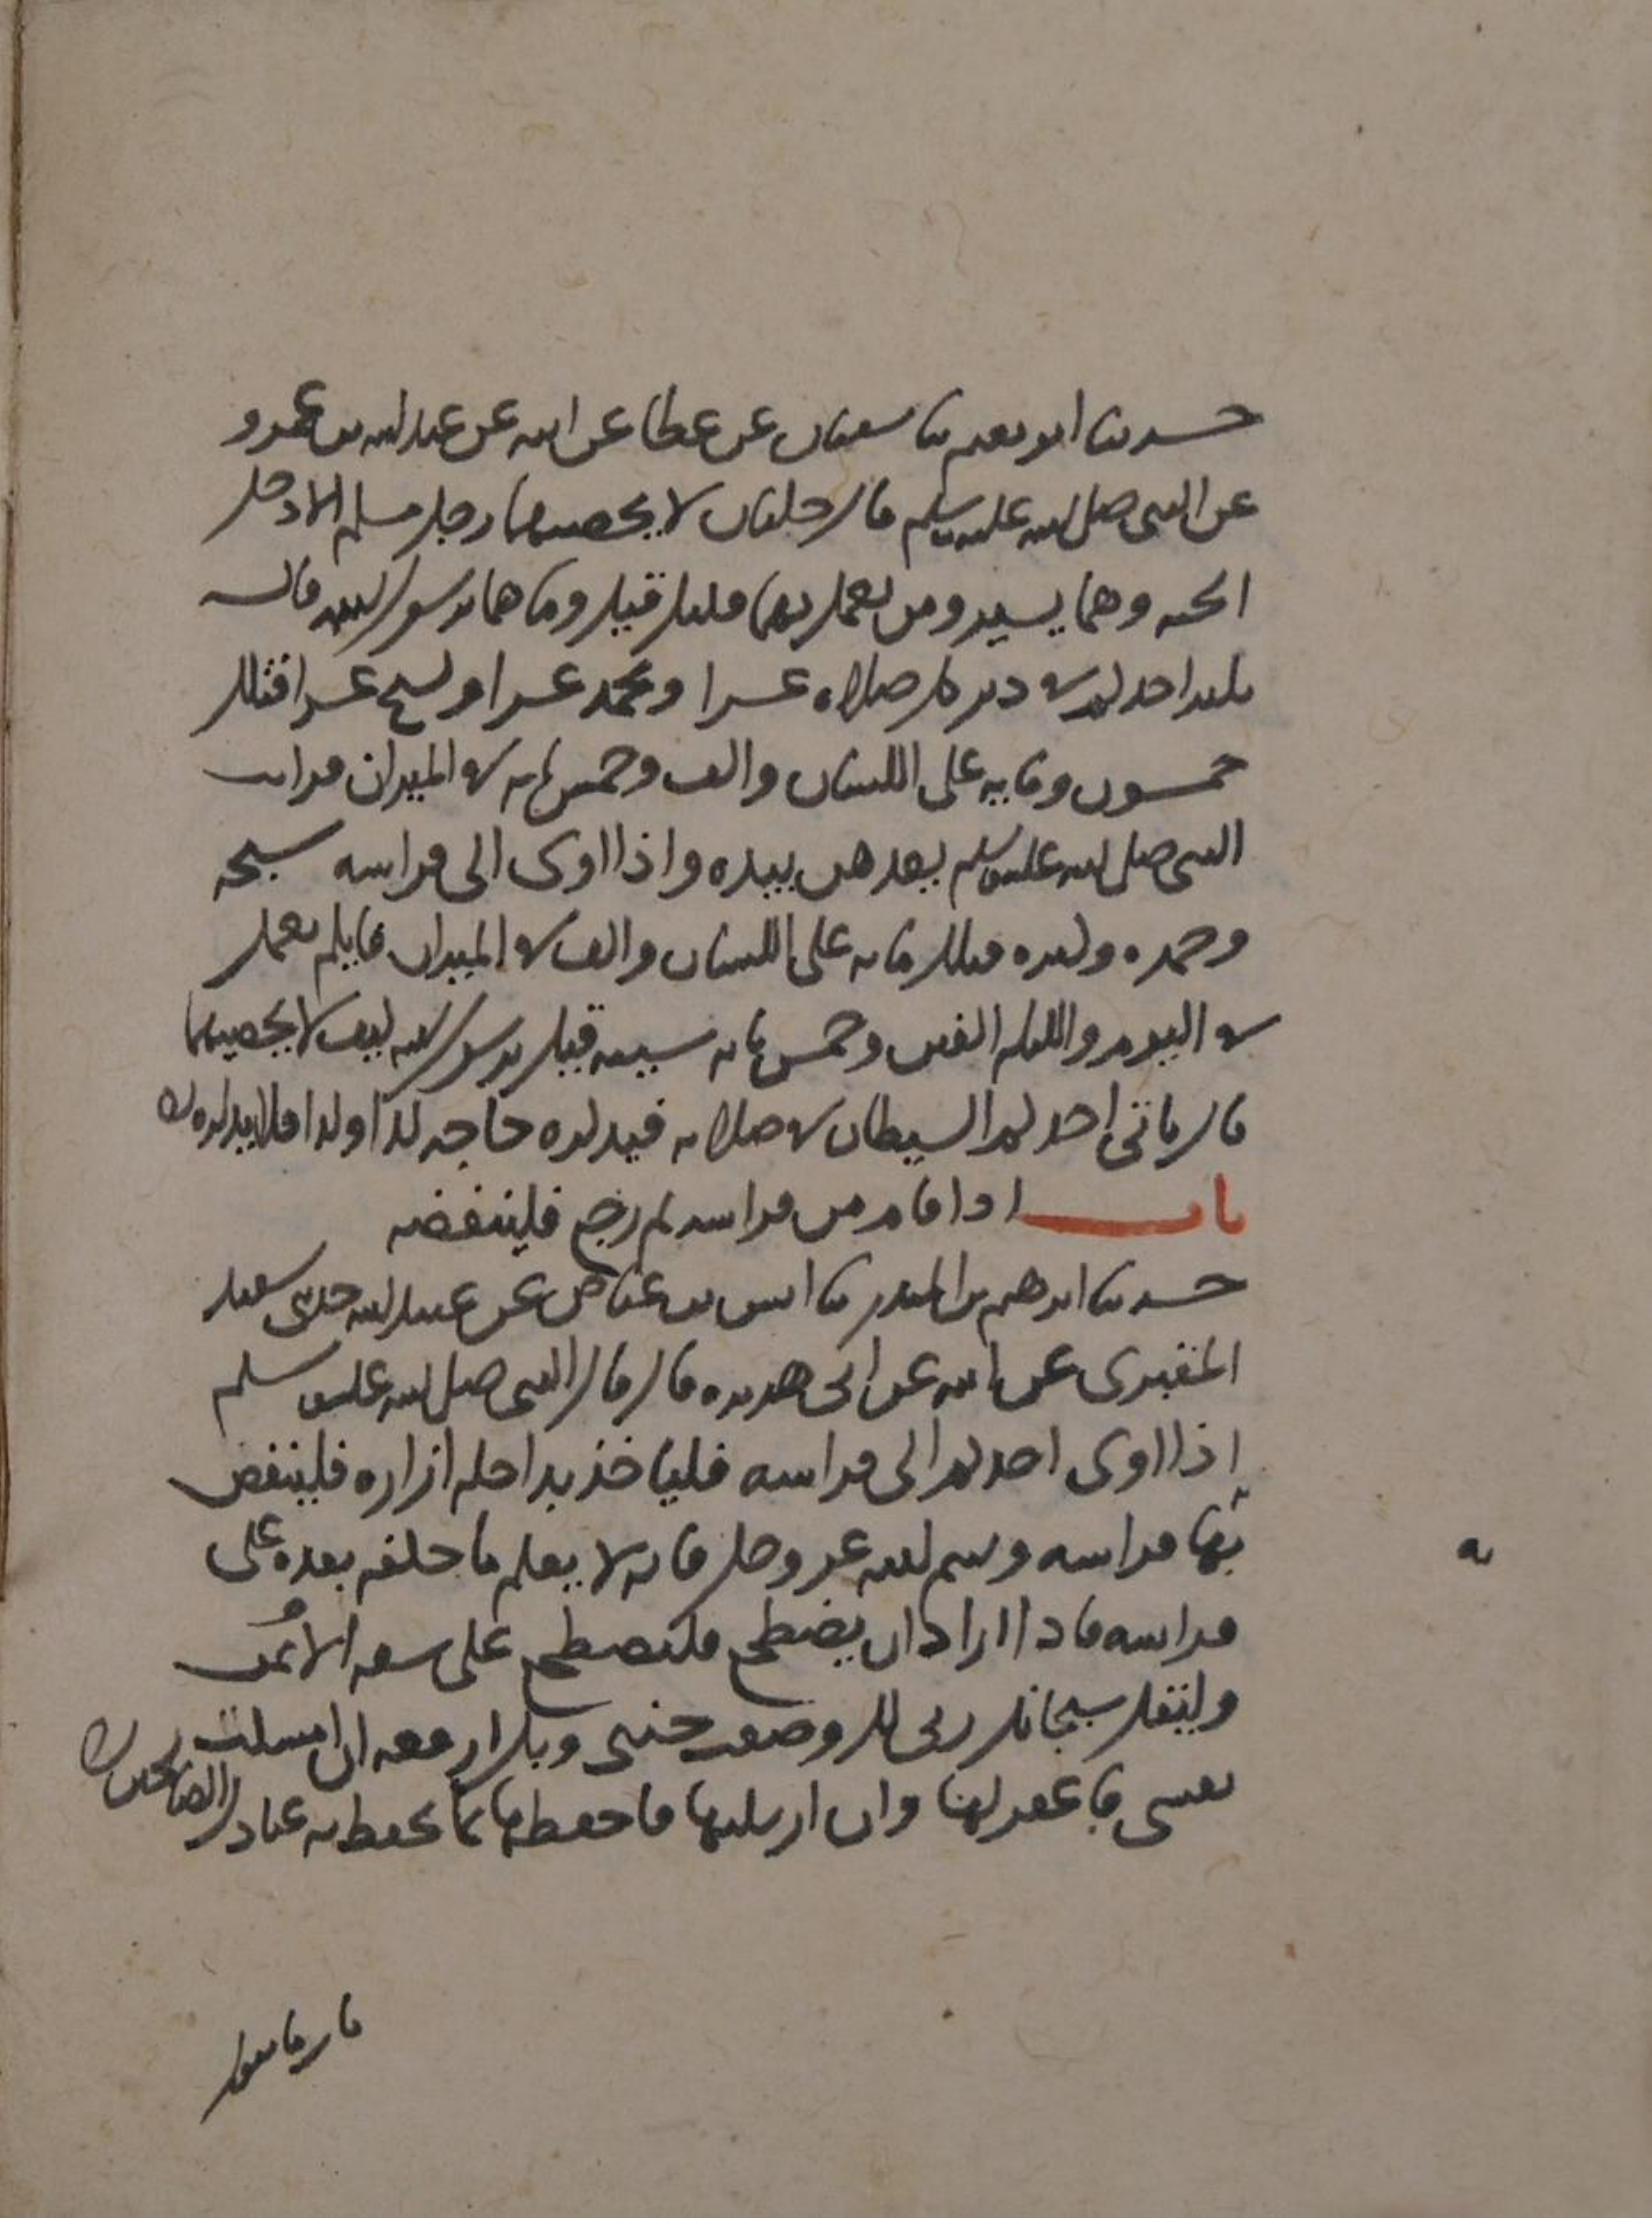 حدثنا ابو نعيم ثنا سفيان عن عطا عن ابيه عن عبد الله بن عمرو
عن النبي صلى الله عليه وسلم قال خلتان لا يحصيهما رجل مسلم الا دخل
الجنه وهما يسير ومن يعمل بهما قليل قيل وما هما يرسول الله قال
يكبر احدكم في دبر كل صلاه عشرا ويحمد عشرا ويسبح عشرا فذلك
خمسون ومايه على اللسان والف وخمس مايه في الميزان فرايت
النبي صلى الله عليه وسلم يعدهن بيده واذا اوى الى فراشه سبحه
وحمده وكبره فتلك مايه على اللسان والف في الميزان فايكم يعمل
في اليوم والليله الفين وخمس مايه سييه قيل يرسول الله كيف لا يحصيهما
قال ياتي احدكم الشيطان في صلاته فيذكره حاجه كذا وكذا فلا يذكره
باب اذا قام من فراشه ثم رجع فلينفضه
حدثنا ابرهيم بن المنذر ثنا انس بن عياض عن عبيد الله حدثني سعيد
المقبري عن ابيه عن ابي هريره قال قال النبي صلى الله عليه وسلم
اذا اوى احدكم الى فراشه فلياخذ بداخله ازاره فلينفض
بها فراشه وسم الله عز وجل فانه لا يعلم ما خلفه بعده على
فراشه فاذا اراد ان يضطجع فليضطجع على شقه الايمن
وليقل سبحانك ربي لك وضعت جنبي وبك ارفعه ان امسكت
نفسي فاغفر لها وان ارسلتها فاحفظها بما تحفظ به عبادك الصالحين